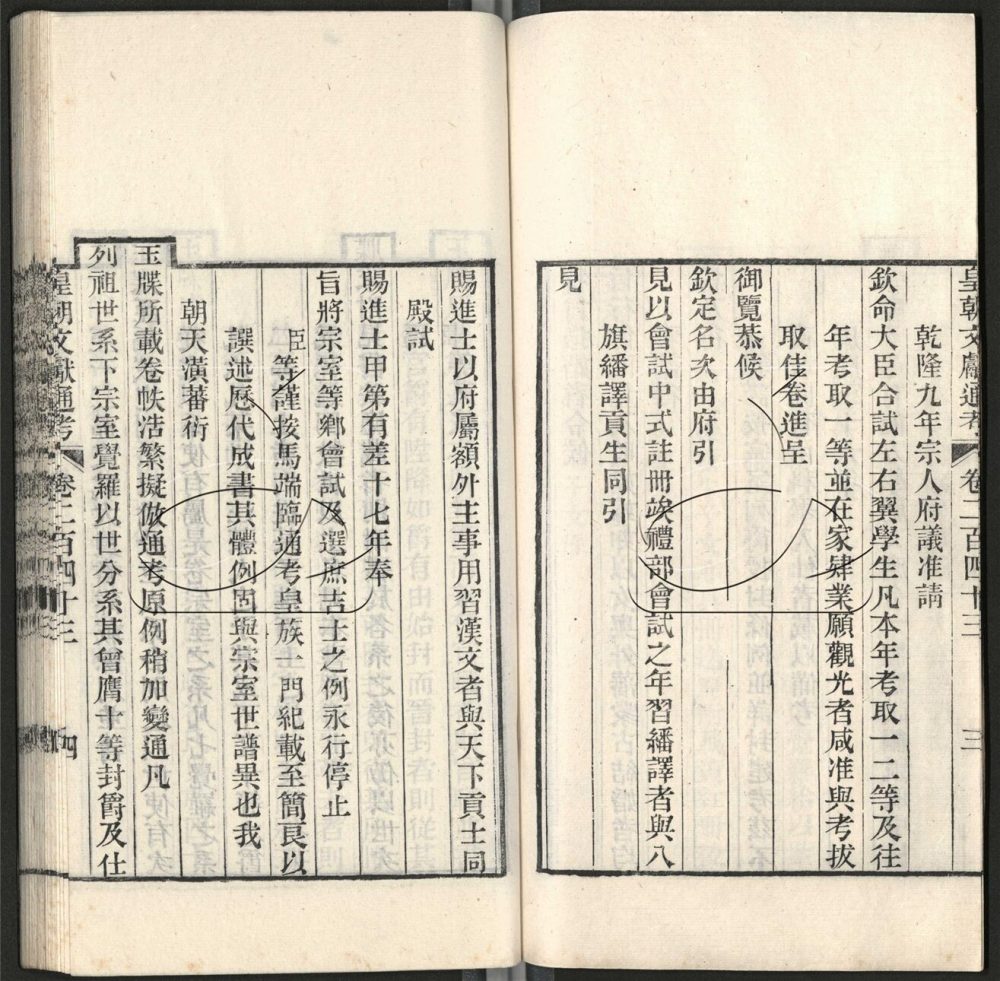 皇朝文獻通考 卷二百四十三 三
乾隆九年宗人府議准請
欽命大臣合試左右翼學生凡本年考取一二等及往
年考取一等並在家肄業願觀光者咸准與考拔
取佳卷進呈
御覽恭候
欽定名次由府引
見以會試中式註冊竢禮部會試之年習繙譯者與八
旗繙譯貢生同引
見
賜進士以府屬額外主事用習漢文者與天下貢士同
殿試
賜進士甲第有差十七年奉
旨將宗室等鄉會試及選庶吉士之例永行停止
臣等謹按馬端臨通考皇族一門紀載至簡良以
譔述歷代成書其體例固與宗室世譜異也我
朝天潢蕃衍
玉牒所載卷帙浩繁擬倣通考原例稍加變通凡
列祖世系下宗室覺羅以世分系其曾膺十等封爵及仕
皇朝文獻通考 卷二百四十三 四